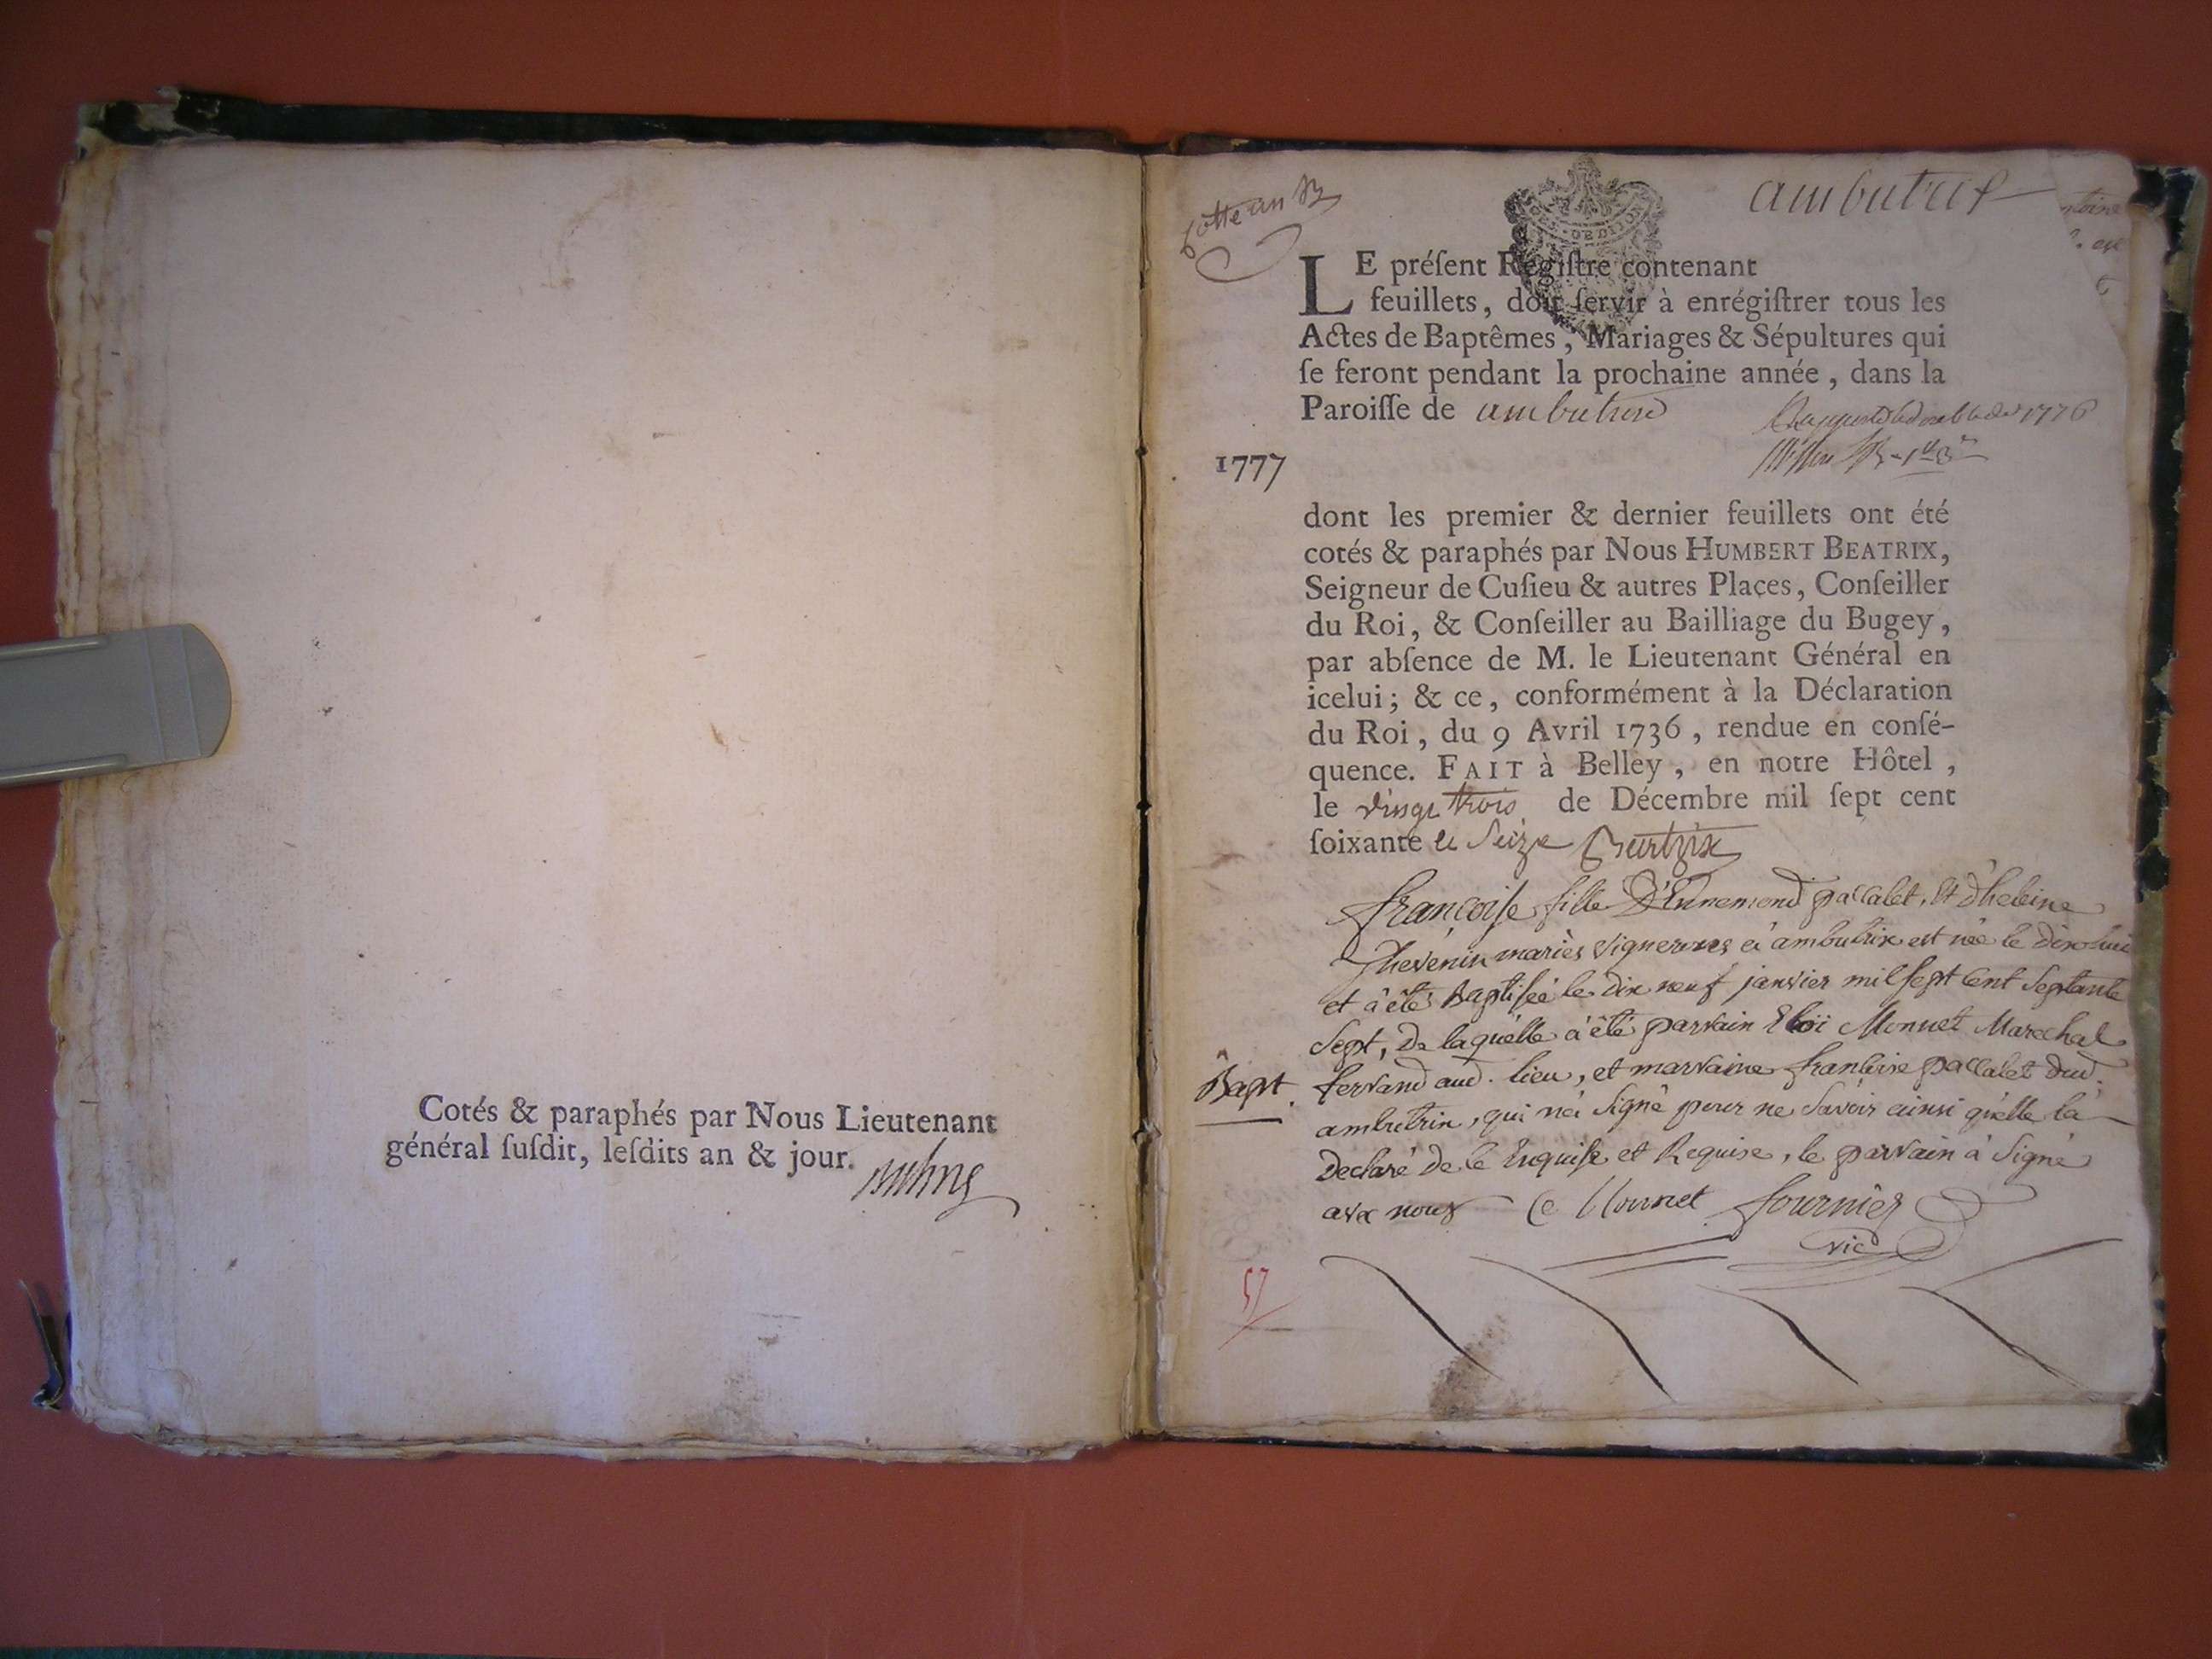 Cotés & paraphés par Nous Lieutenant
général ſuſdit, leſdits an & jour.
ambutrix
LE préſent Regiſtre contenant
feuillets, doit ſervir à enrégiſtrer tous les
Actes de Baptêmes, Mariages & Sépultures qui
ſe feront pendant la prochaine année, dans la
Paroiſſe de ambutrix
1776
1777
dont les premier & dernier feuillets ont été
cotés & paraphés par Nous HUMBERT BEATRIX,
Seigneur de Cuſieu & autres Places, Conſeiller
du Roi, & Conſeiller au Bailliage du Bugey,
par abſence de M. le Lieutenant Général en
icelui; & ce, conformément à la Déclaration
du Roi, du 9 Avril 1736, rendue en conſé-
quence. FAIT à Belley, en notre Hôtel,
le vingt trois de Décembre mil ſept cent
ſoixante et Seize Beatrix
françoiſe fille D'Ennemond paccalet, Et d'heleine
Thevenin mariés vignerons à ambutrix est née le dix huit
et à été Baptiſée le dix neuf janvier mil ſept Cent Septante
Sept, De laquelle à êté parrain Eloï Monnet Marechal
ferrand aud. lieu, et marraine françoise paccalet dud.
Bapt.
ambutrix, qui n'à Signé pour ne Savoir ainsi qu'elle l'à
Declaré De ce Enquiſe et Requise, le parrain à Signé
avec nous E Monnet fournier
vic
57